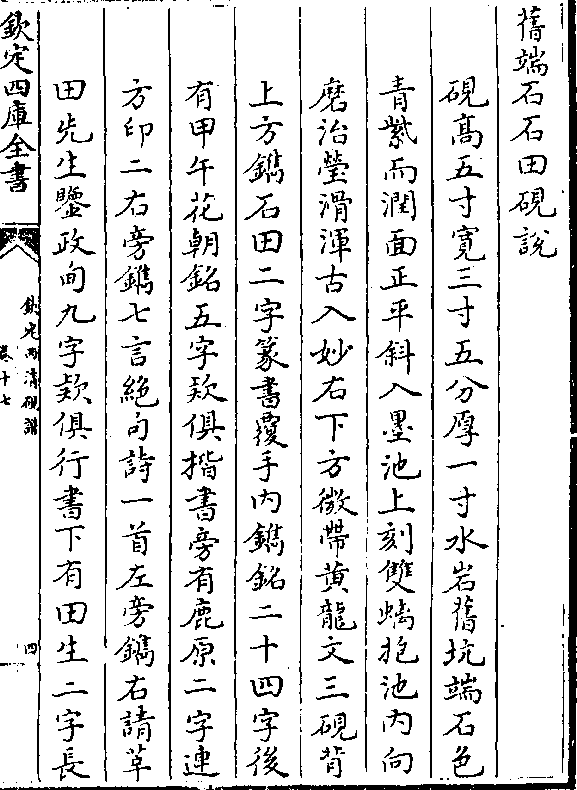 舊端石石田硯說
硯髙五寸寛三寸五分厚一寸水岩舊坑端石色
青紫而潤面正平斜入墨池上刻雙螭抱池内向
磨治瑩滑渾古入妙右下方微帶黄龍文三硯背
上方鐫石田二字篆書覆手内鐫銘二十四字後
有甲午花朝銘五字欵俱揩書旁有鹿原二字連
方印二右旁鐫七言絶句詩一首左旁鐫右請草
田先生鑒政甸九字欵俱行書下有田生二字長
欽定四庫全書
欽定西清硯譜
卷十七
四